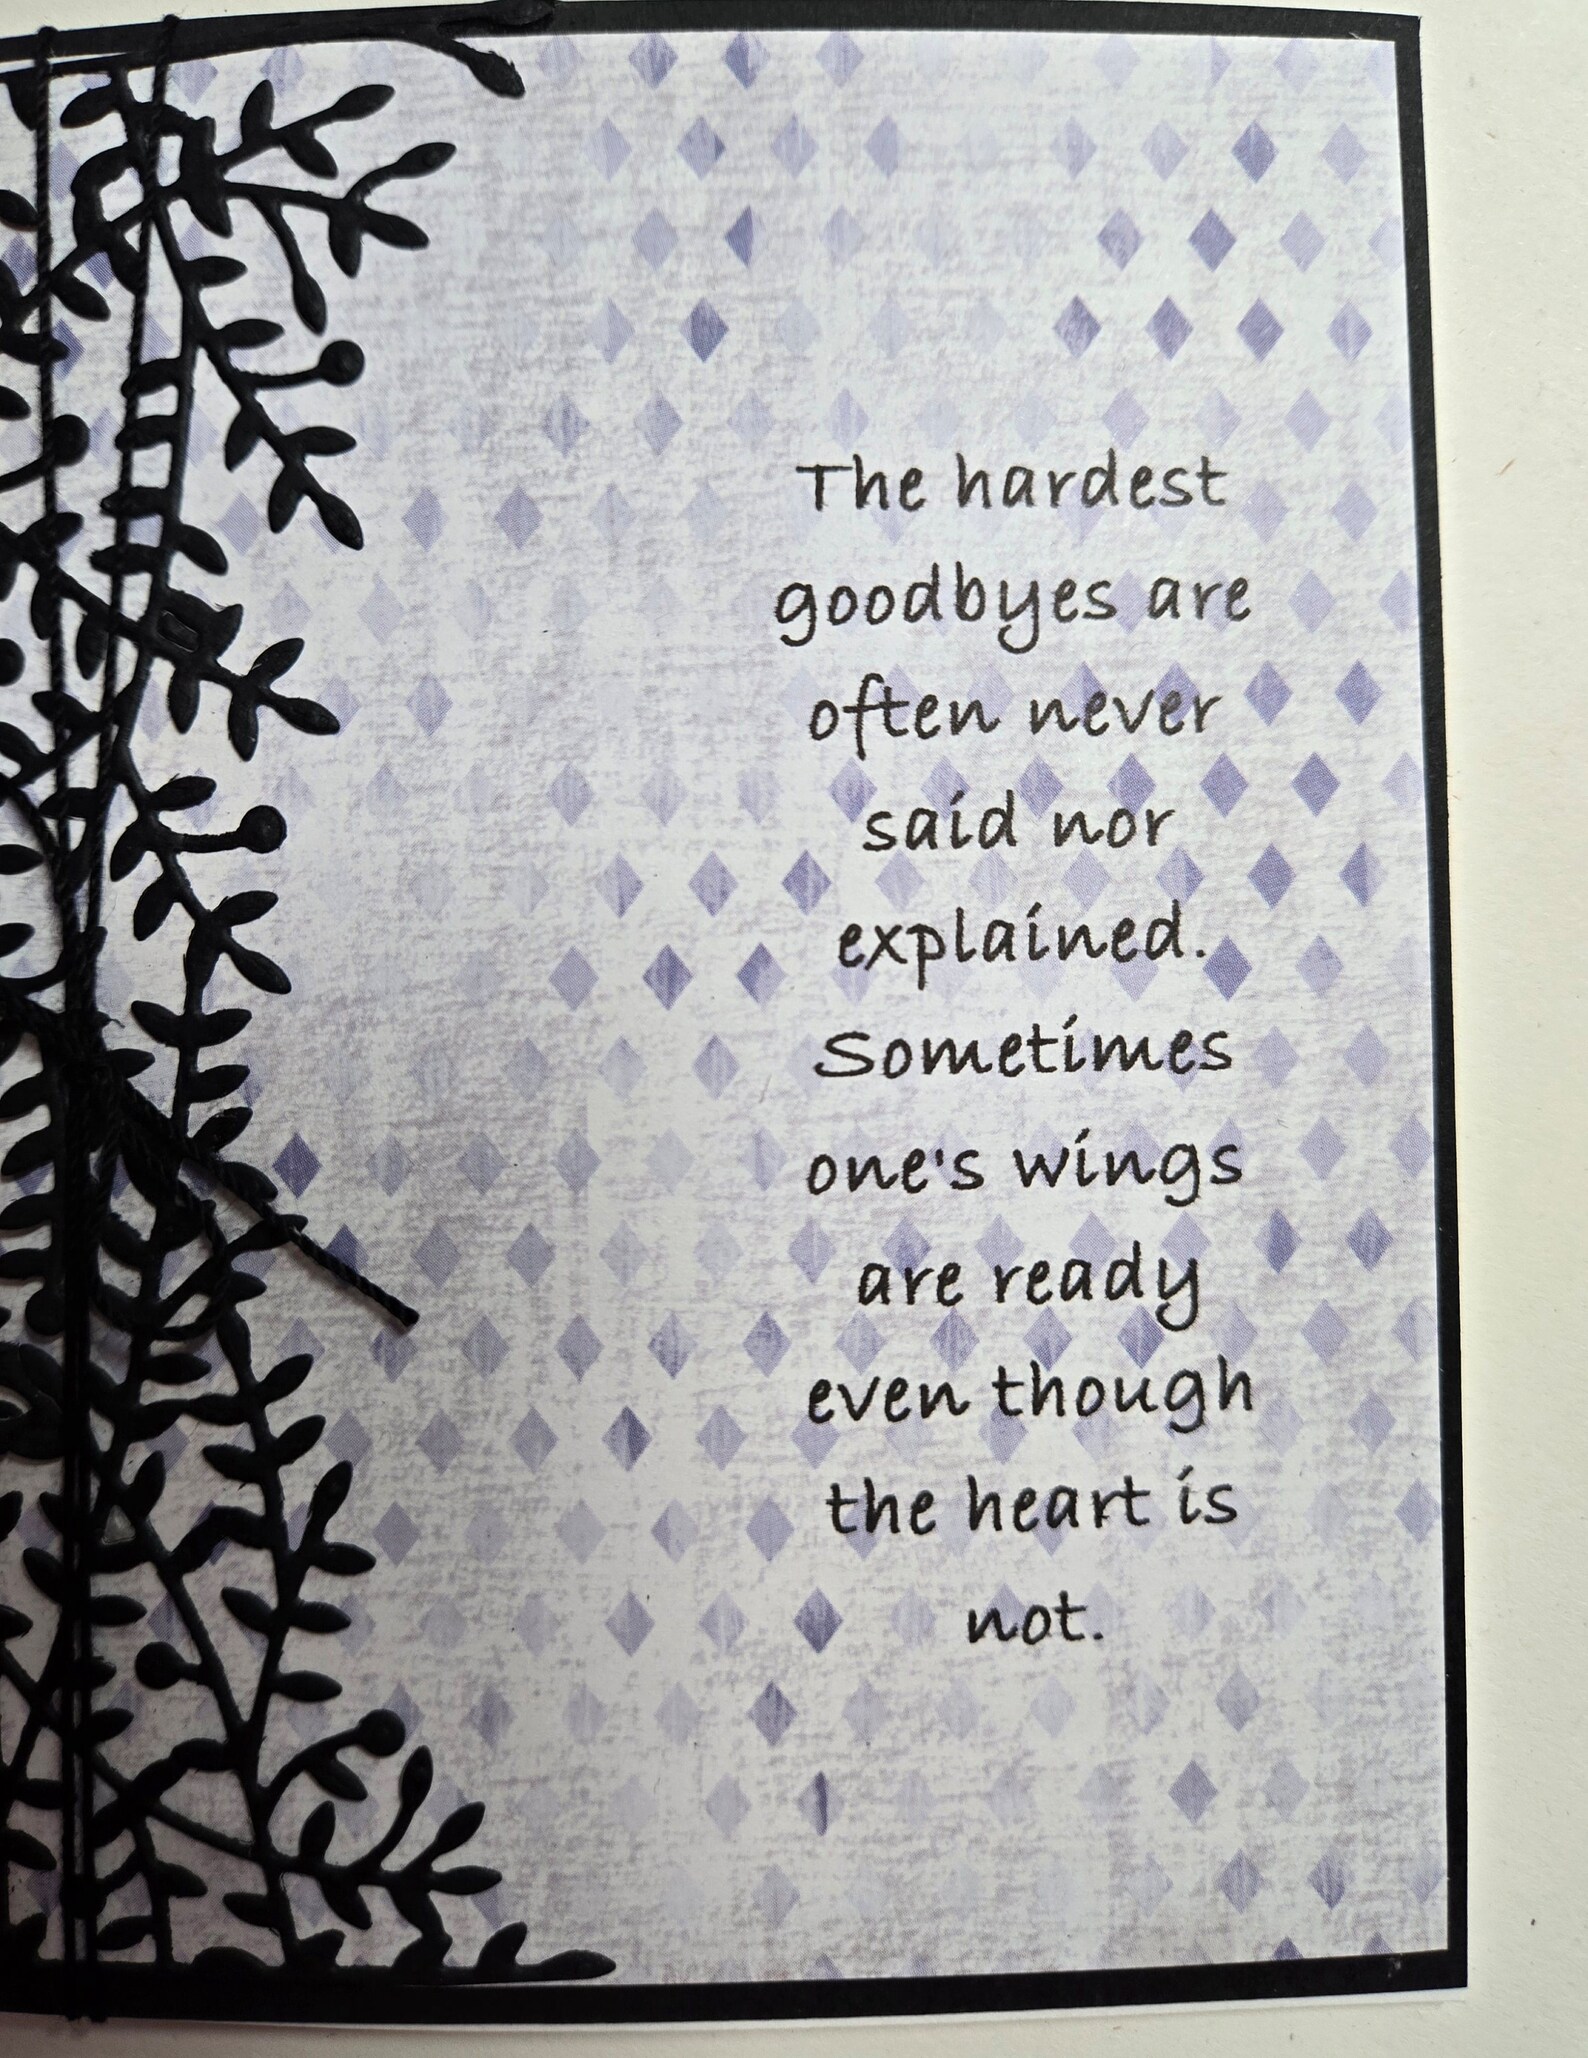 The hardest
goodbyes are
often never
said nor
explained.
Sometimes
one's wings
are ready
even though
the heart is
not.